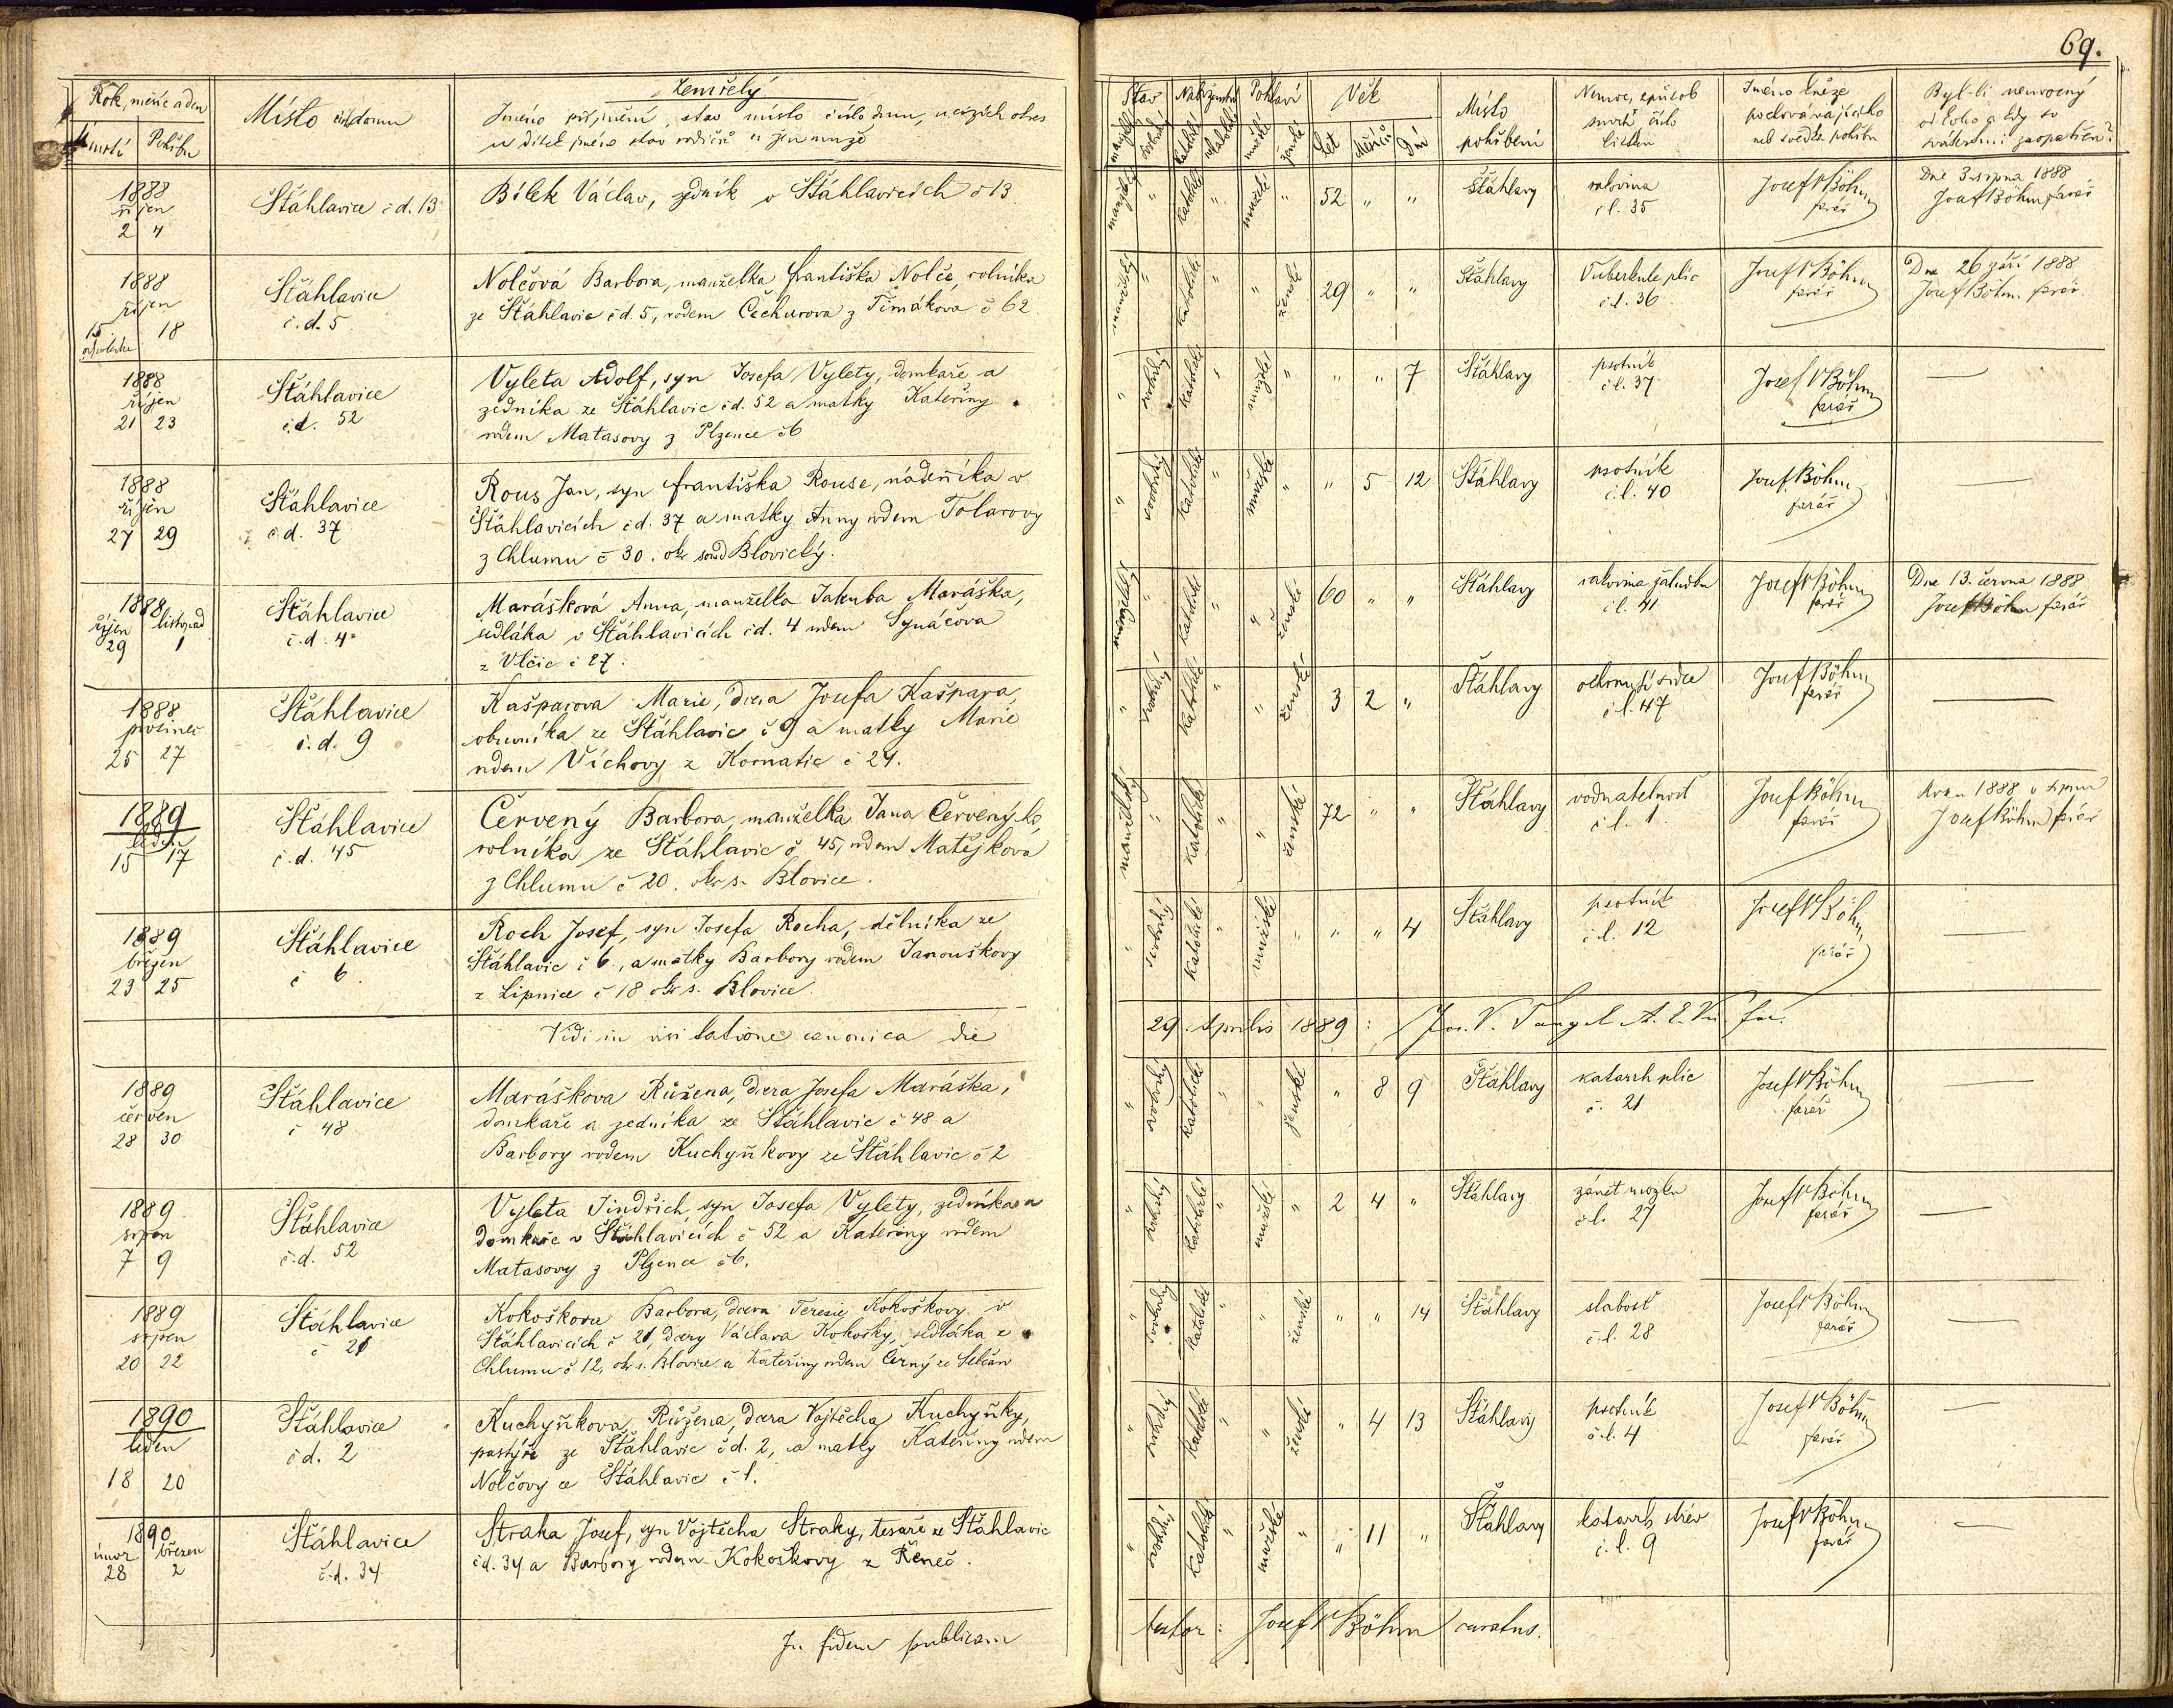 69.
Rok, měsíc a den
Úmrtí Pohřbu
Místo čís. domu
Zemřelý
Jméno příjmení, stav místo číslo domu, u cizích okres
u dítek jméno stav rodičů u žen muže
Stav
manželský svobodný
Náboženství
katolické
Pohlaví
mužské ženské
Věk
Let Měsíců Dní
Místo
pohřbení
Nemoc, způsob
smrti číslo
lístku
Jméno kněze
pochovávajícího
neb svědka pohřbu
Byl-li nemocný
od koho a kdy sv
svátostmi zaopatřen?
1888
říjen
2 4
Šťáhlavice č d. 13
Bílek Václav, zedník v Šťáhlavicích č 13
manželský " katolické " mužské " 52 " "
Šťáhlavy
rakovina
č l. 35
Josef Böhm
farář
Dne 3 srpna 1888
Josef Böhm farář
1888
říjen
15 18
Šťáhlavice
č. d. 5.
Nolčová Barbora, manželka Františka Nolče, rolníka
ze Šťáhlavic č d. 5, rodem Čechurova z Timákova č 62.
manželský " katolické " " ženské 29 " "
Šťáhlavy
Tuberkule plic
č l. 36
Josef Böhm
farář
Dne 26 září 1888
Josef Böhm farář
1888
říjen
21 23
Šťáhlavice
č. d. 52
Vyleta Adolf, syn Josefa Vylety, domkaře a
zedníka ze Šťáhlavic č d. 52 a matky Kateřiny
rodem Matasovy z Plzence č 6
" svobodný katolické " mužské " " " 7
Šťáhlavy
psotník
č l. 37
Josef Böhm
farář
1888
říjen
27 29
Šťáhlavice
č. d. 37
Rous Jan, syn Františka Rouse, nádeníka v
Šťáhlavicích č d. 37 a matky Anny rodem Tolarovy
z Chlumu č 30. okr soud Blovický.
" svobodný katolické " mužské " " 5 12
Šťáhlavy
psotník
č. l. 40
Josef Böhm
farář
1888
říjen listopad
29 1
Šťáhlavice
č. d. 4
Marášková Anna, manželka Jakuba Maráška,
sedláka v Šťáhlavicích č d. 4 rodem Synáčova
z Vlčic č 27.
manželský " katolické " " ženské 60 " "
Šťáhlavy
rakovina žaludku
č l. 41
Josef Böhm
farář
Dne 13. června 1888
Josef Böhm farář
1888
prosinec
25 27
Šťáhlavice
č. d. 9
Kašparova Marie, dcera Josefa Kašpara,
obuvníka ze Šťáhlavic č 9 a matky Marie
rodem Víchovy z Kornatic č 24.
" svobodný katolické " " ženské 3 2 "
Šťáhlavy
ochrnutí srdce
č l. 47
Josef Böhm
farář
1889
leden
15 17
Šťáhlavice
č. d. 45
Červený Barbora, manželka Jana Červeného,
rolníka ze Šťáhlavic č 45, rodem Matějkova
z Chlumu č 20. okr s. Blovice.
manželský " katolické " " ženské 72 " "
Šťáhlavy
vodnatelnosť
č l. 1
Josef Böhm
farář
Roku 1888 v srpnu
Josef Böhm farář
1889
březen
23 25
Šťáhlavice
č 6.
Roch Josef, syn Josefa Rocha, dělníka ze
Šťáhlavic č 6, a matky Barbory rodem Janouškovy
z Lipnice č 18 okr s. Blovice.
" svobodný katolické " mužské " " " 4
Šťáhlavy
psotník
č l. 12
Josef Böhm
farář
Vidi in visitatione canonica die
29. Aprilis 1889:
1889
červen
28 30
Šťáhlavice
č 48
Maráškova Růžena, dcera Josefa Maráška,
domkaře a zedníka ze Šťáhlavic č 48 a
Barbory rodem Kuchyňkovy ze Šťáhlavic č 2
" svobodný katolické " " ženské " 8 9
Šťáhlavy
katarrh plic
č. 21
Josef Böhm
farář
1889
srpen
7 9
Šťáhlavice
č. d. 52
Vyleta Jindřich, syn Josefa Vylety, zedníka a
domkaře v Šťáhlavicích č 52 a Kateřiny rodem
Matasovy z Plzence č 6.
" svobodný katolické " mužské " 2 4 "
Šťáhlavy
zánět mozku
č l. 27
Josef Böhm
farář
1889
srpen
20 22
Šťáhlavice
č 21
Kokoškova Barbora, dcera Terezie Kokoškovy v
Šťáhlavicích č 21, dcery Václava Kokošky, sedláka z
Chlumu č 12, okr s. Blovice a Kateřiny rodem Černý ze
" svobodný katolické " " ženské " " 14
Šťáhlavy
slabosť
č l. 28
Josef Böhm
farář
1890
leden
18 20
Šťáhlavice
č d. 2
Kuchyňková Růžena, dcera Vojtěcha Kuchyňky,
pastýře ze Šťáhlavic č d. 2, a matky Kateřiny rodem
Nolčovy ze Šťáhlavic č 1.
" svobodný katolické " " ženské " 4 13
Šťáhlavy
psotník
č. l. 4
Josef Böhm
farář
1890
únor březen
28 2
Šťáhlavice
č. d. 34
Straka Josef, syn Vojtěcha Straky, tesaře ze Šťáhlavic
č d. 34 a Barbory rodem Kokoškovy z Řeneč.
" svobodný katolické " mužské " " 11 "
Šťáhlavy
katarrh střev
č. l. 9
Josef Böhm
farář
In fidem publicam
testor: Josef Böhm curatus.